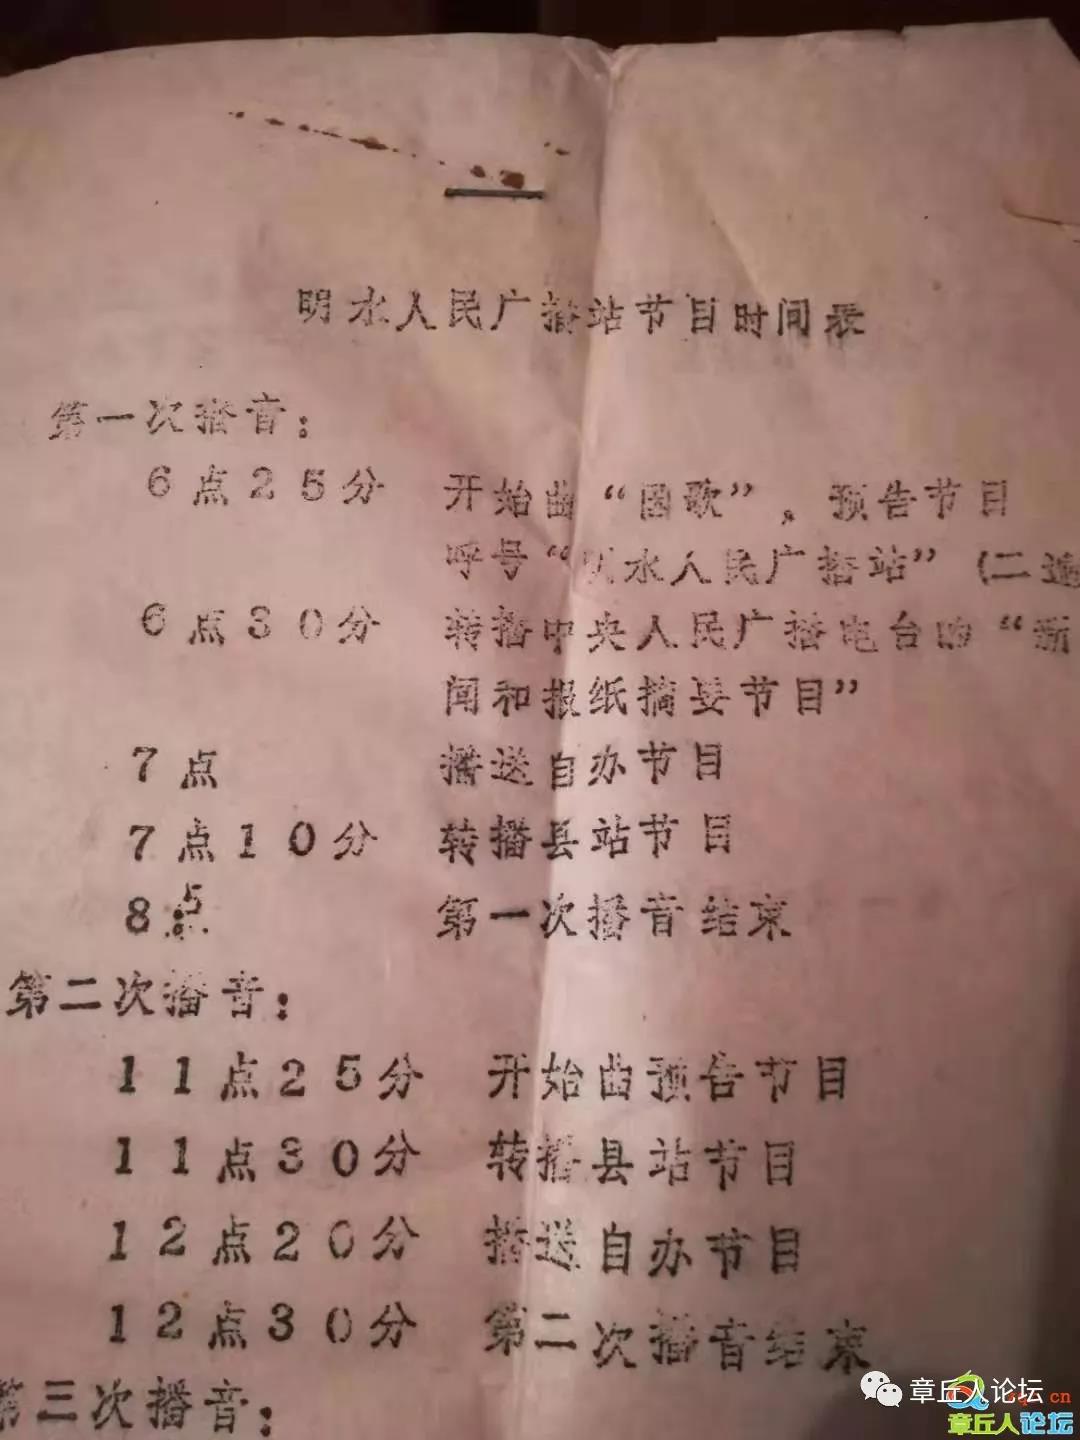 明水人民广播站节目时间表
第一次播音：
6点25分 开始曲“国歌”，预告节目
呼号“明水人民广播站”（二遍
6点30分 转播中央人民广播电台的“新
闻和报纸摘要节目”
7点 播送自办节目
7点10分 转播县站节目
8:5 第一次播音结束
第二次播音：
11点25分 开始曲预告节目
11点30分 转播县站节目
12点20分 播送自办节目
12点30分 第二次播音结束
第三次播音：
章丘人论坛
cn
章丘人论坛